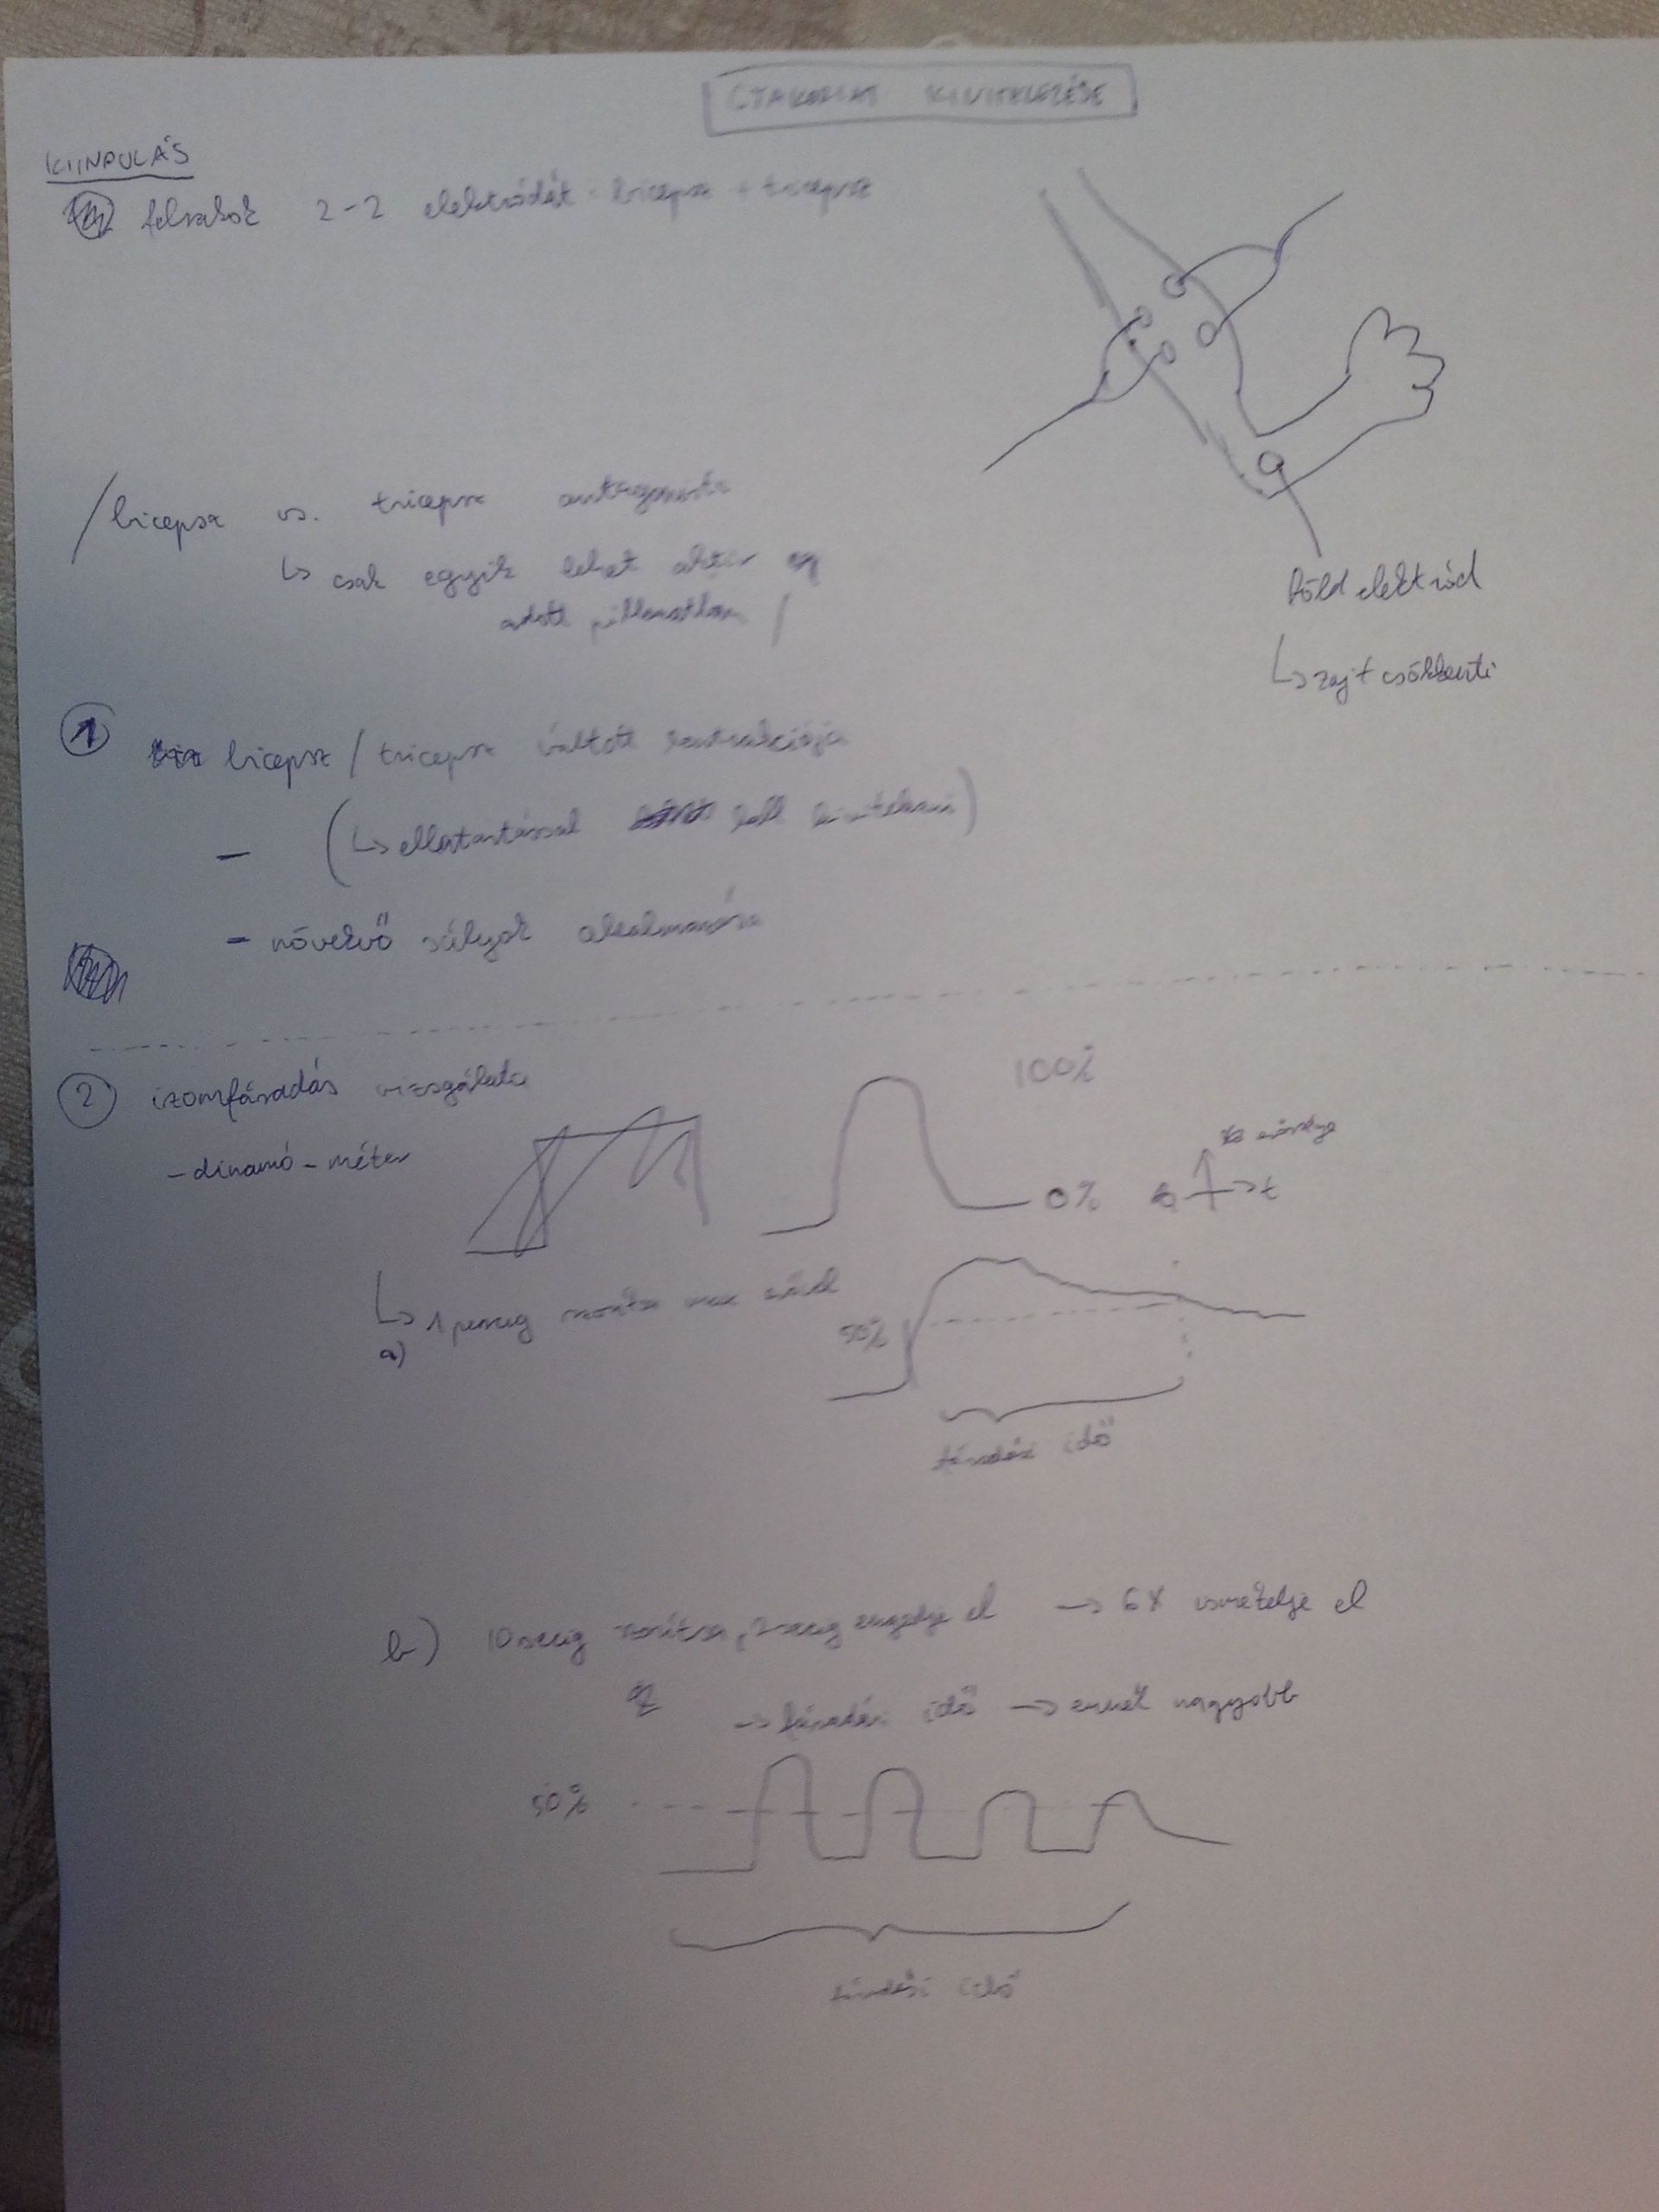 GYAKORLAT KIVITELEZÉSE
KIINDULÁS
felrakok 2-2 elektródát - bicepsz + tricepsz
/bicepsz vs. tricepsz antagonista
↳ csak egyik lehet aktív egy
adott pillanatban/
földelektród
↳ zajt csökkenti
① bicepsz/tricepsz váltott kontrakciója
-
(↳ ellentartással kell kivitelezni)
- növekvő súlyok alkalmazása
② izomfáradás vizsgálata
- dinamó-méter
100%
0%
t
↳ 1 percig szorítsa
a)
50%
fáradási idő
b) 10 secig szorítsa, 2 secig engedje el → 6X ismételje el
→ fáradási idő → ennek nagyobb
50%
fáradási idő